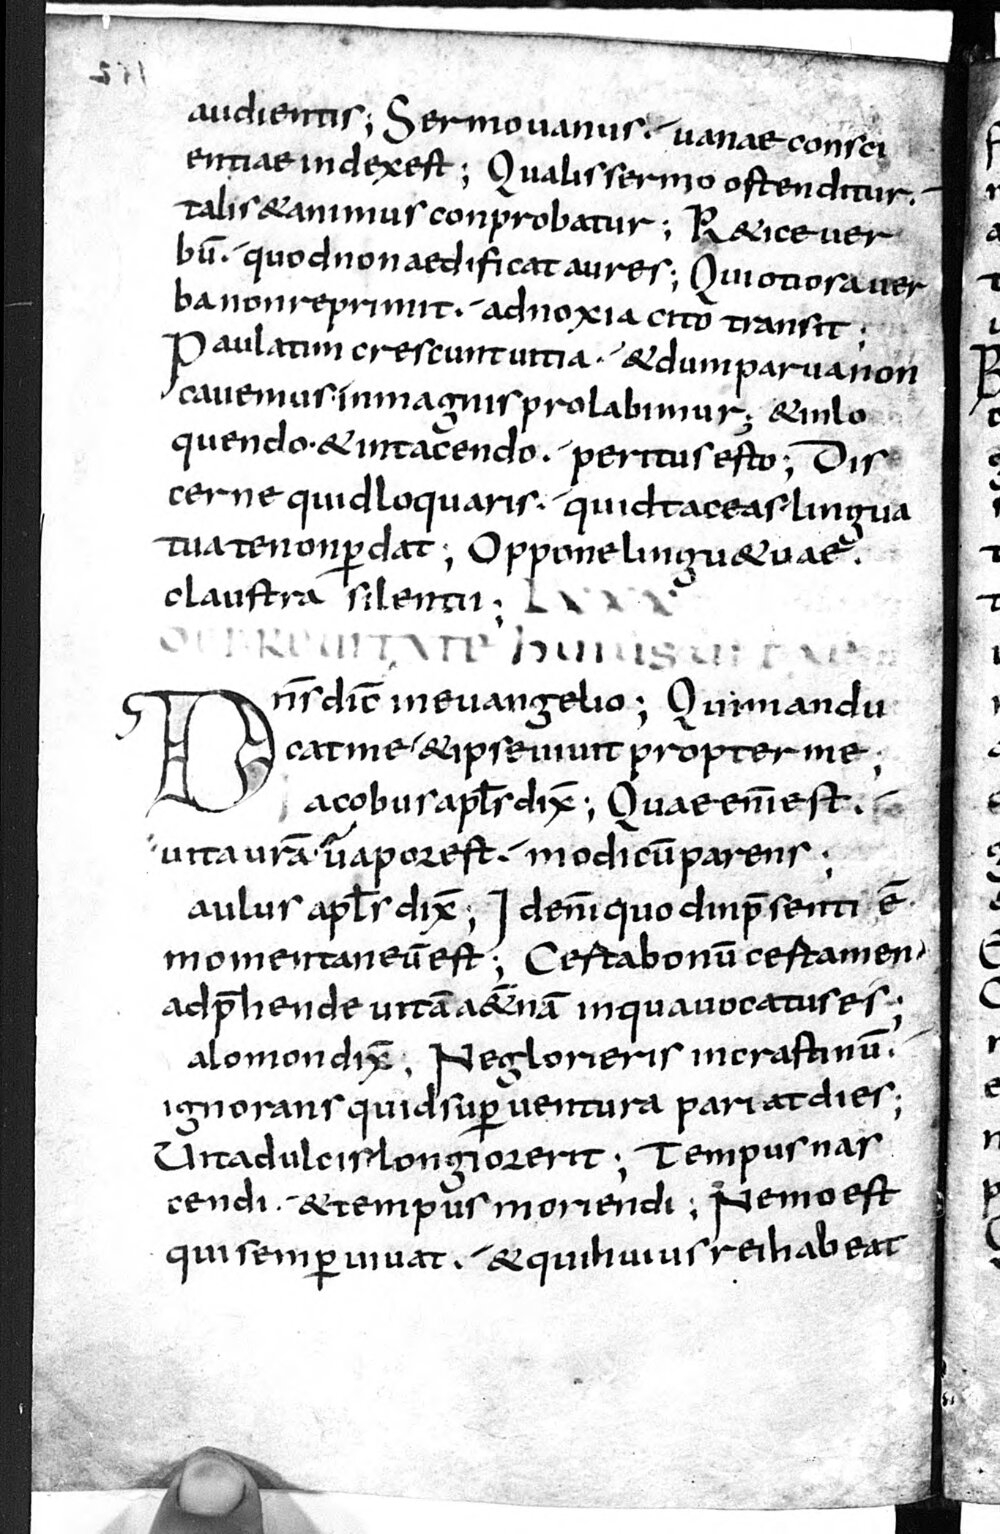 audientis; Sermo uanus. uanae consci
entiae index est; Qualis sermo ostenditur.
talis & animus conprobatur; R&ice uer
bū. quod non aedificat aures; Qui otiosa uer
ba non reprimit. ad noxia cito transit;
Paulatim crescunt uitia. & dum parua non
cavemus in magnis prolabimur; & in lo
quendo. & in tacendo. peritus esto; Dis
cerne quid loquaris. quid taceas lingua
tua te non ꝑdat; Oppone linguae uae.
claustra silentii; LXXX
breuitate huius uitae
Dn̄s dic̄ in euangelio; Qui mandu
cat me & ipse uiuit propter me;
acobus apl̄s dix̄; Quae enī est.
uita ur̄a. uapor est. modicū parens;
aulus apl̄s dix̄; Id enī quod in p̄senti ē
momentaneū est; Certa bonū certamen
adp̄hende uitā a&nā in qua uocatus es;
alomon dix̄; Ne glorieris in crastinū.
ignorans quid suꝑuentura pariat dies;
Uita dulcis longior erit; Tempus nas
cendi. & tempus moriendi; Nemo est
qui semꝑ uiuat. & qui huius rei habeat